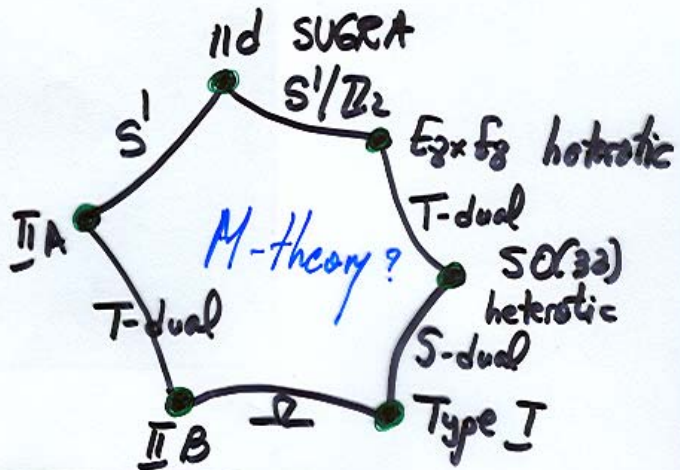 11d SUGRA
S¹
S¹/ℤ₂
E₈×E₈ heterotic
T-dual
IIA
M-theory?
SO(32)
heterotic
T-dual
S-dual
IIB
Ω
Type I